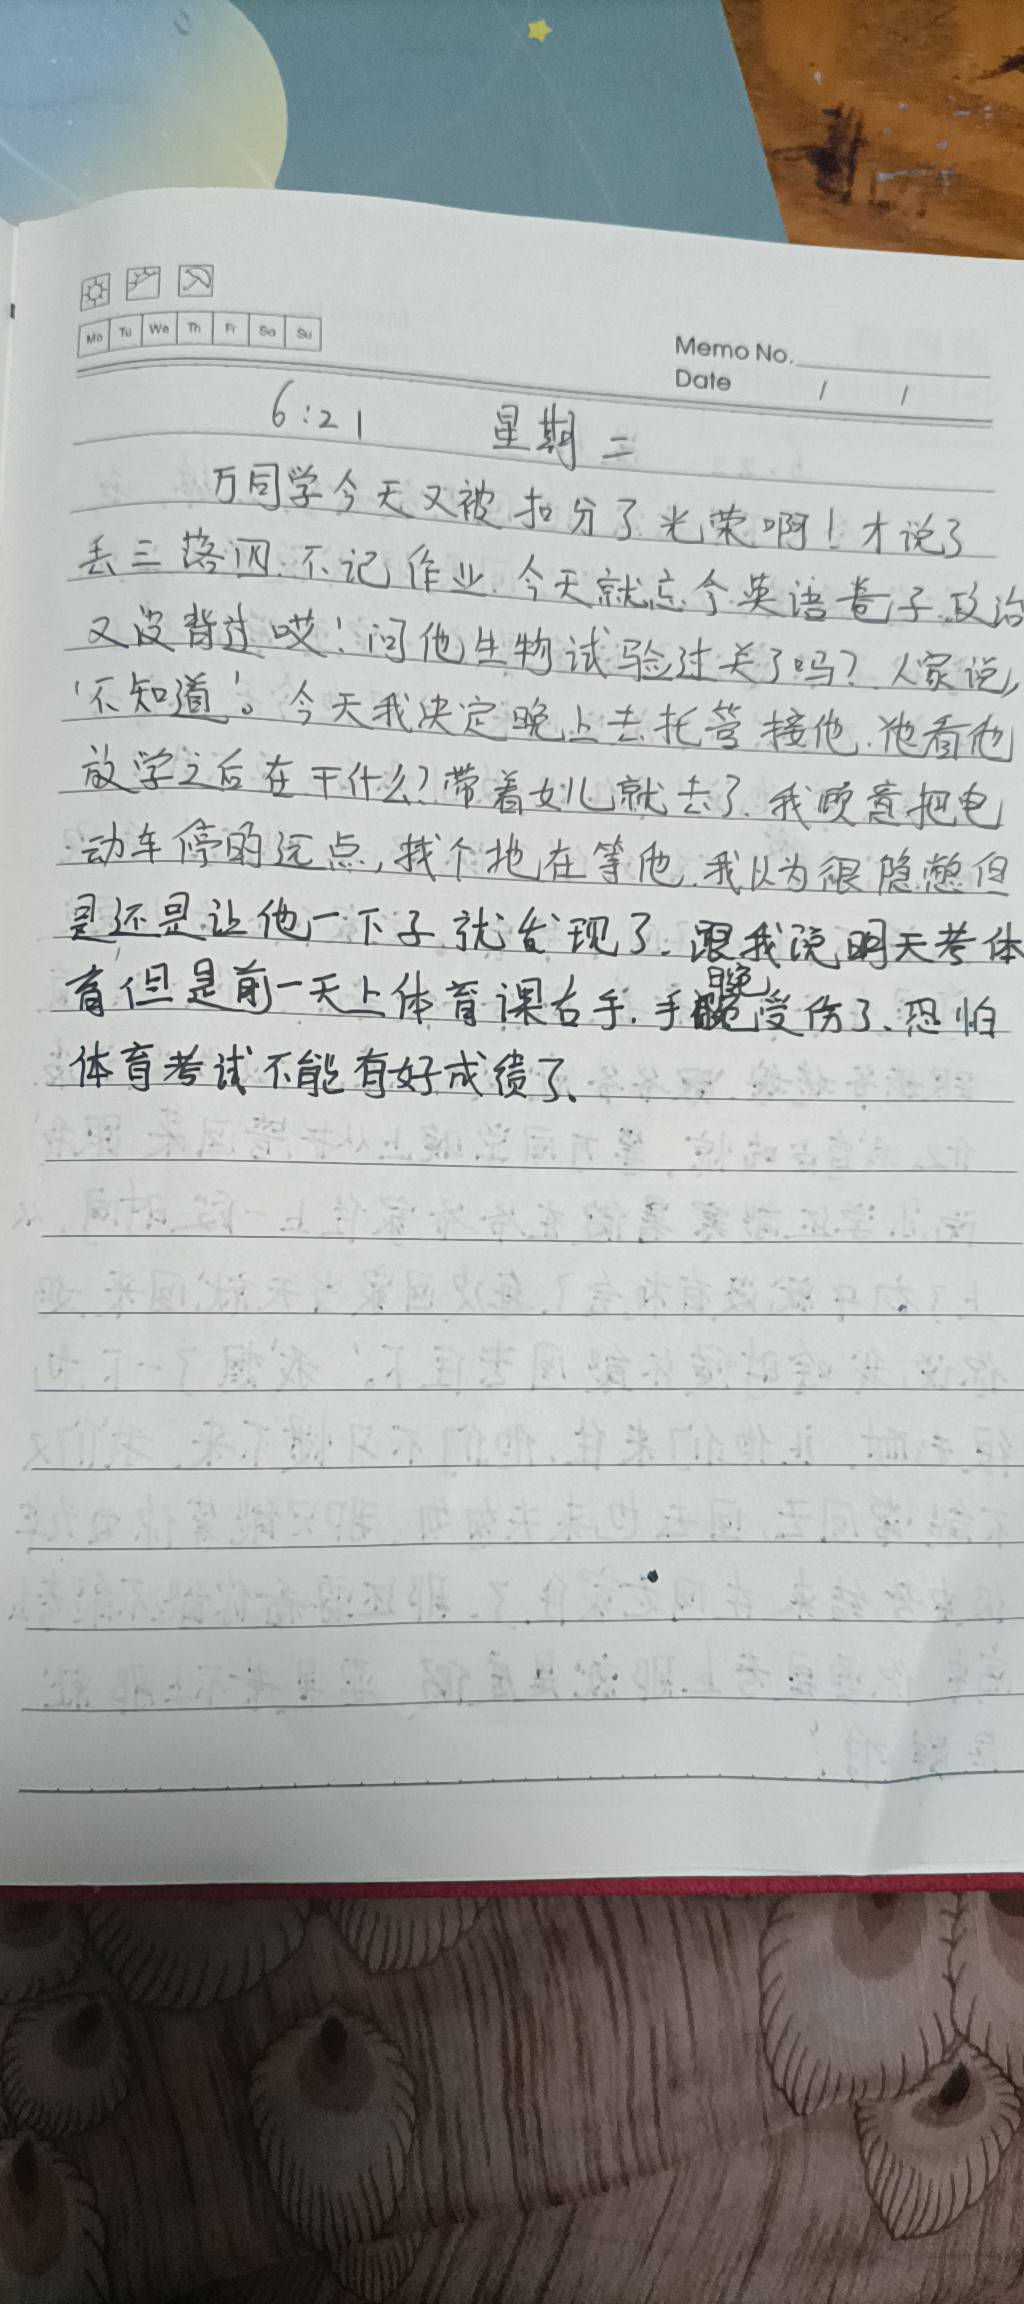 Mo Tu We Th Fr Sa Su
Memo No.
Date / /
6:21 星期二
万同学今天又被扣分了光荣啊!才说了
丢三落四.不记作业.今天就忘拿英语卷子.政治
又没背过哎!问他生物试验过关了吗?人家说,
'不知道'。今天我决定晚上去托管接他.他看他
放学之后在干什么?带着女儿就去了.我故意把电
动车停的远点,找个地在等他.我以为很隐憋但
是还是让他一下子就发现了.跟我说明天考体
育,但是前一天上体育课右手.手腕受伤了.恐怕
体育考试不能有好成绩了.